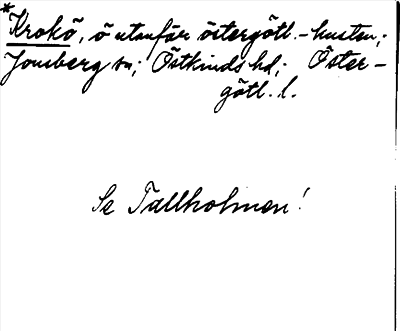 * Krokö, ö utanför östergötl.-kusten;
Jonsberg sn; Östkinds hd; Öster-
götl. l.
Se Tallholmen!